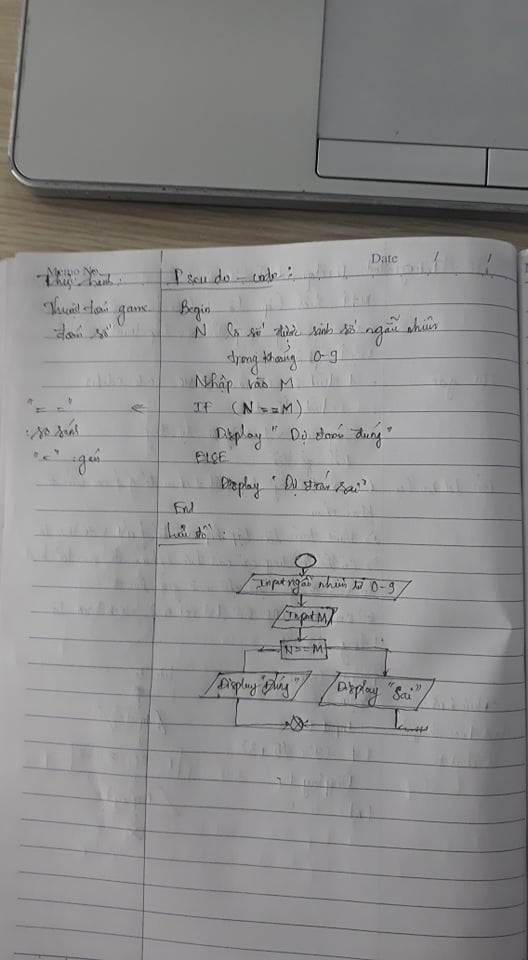 Memo No.
Date / /
Thực hành:
Pseudo-code:
Thuật toán game
đoán số
Begin
N là số được sinh số ngẫu nhiên
trong khoảng 0-9
Nhập vào M
"= =" ⇐
: so sánh
"=" : gán
IF (N==M)
Display "Dự đoán đúng"
ELSE
Display "Dự đoán sai"
End
Lưu đồ:
Input ngẫu nhiên từ 0-9
Input M
N==M
Display "Đúng"
Display "Sai"